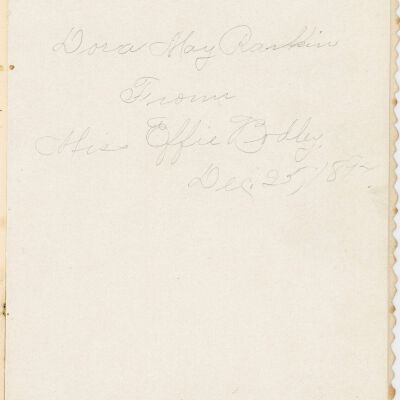 Dora May Rankin
From
Miss Effie Bodley,
Dec. 25,